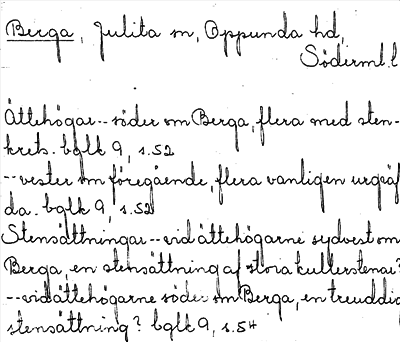 Berga, Julita sn, Oppunda hd,
Söderml.l
Ättehögar -- söder om Berga, flera med sten-
krets. bglk 9, s.52
-- vester om föregående, flera vanligen urgräf
da. bglk 9, s.52
Stensättningar -- vid ättehögarne sydvest om
Berga, en stensättning af stora kullerstenar?
-- vid ättehögarne söder om Berga, en treuddig
stensättning? bglk 9, s.54